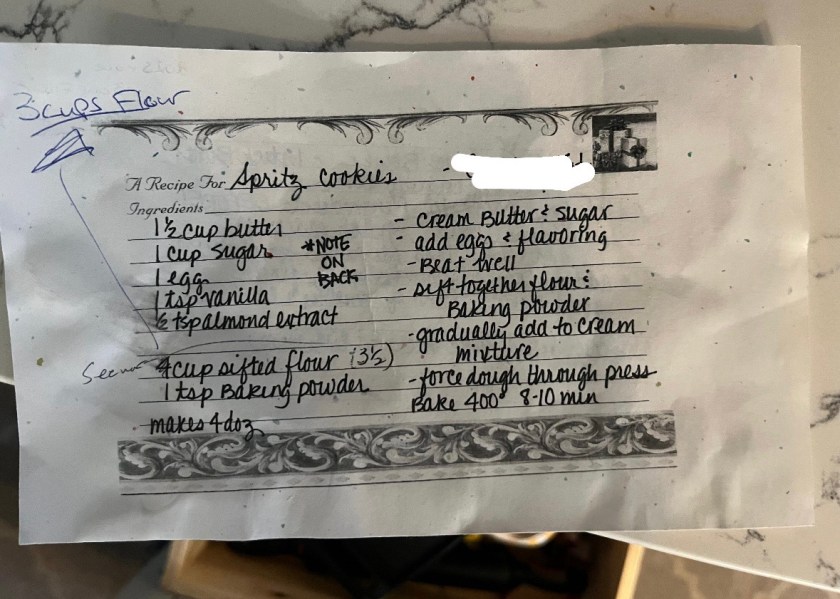 3 cups Flour
A Recipe For: Spritz cookies -
Ingredients
1½ cup butter
1 cup sugar
1 egg
1 tsp vanilla
½ tsp almond extract
4 cup sifted flour (3½)
1 tsp Baking powder
makes 4 doz
*NOTE
ON
BACK
- cream Butter & sugar
- add eggs & flavoring
- Beat well
- sift together flour &
Baking powder
- gradually add to cream
mixtture
- force dough through press
Bake 400° 8-10 min